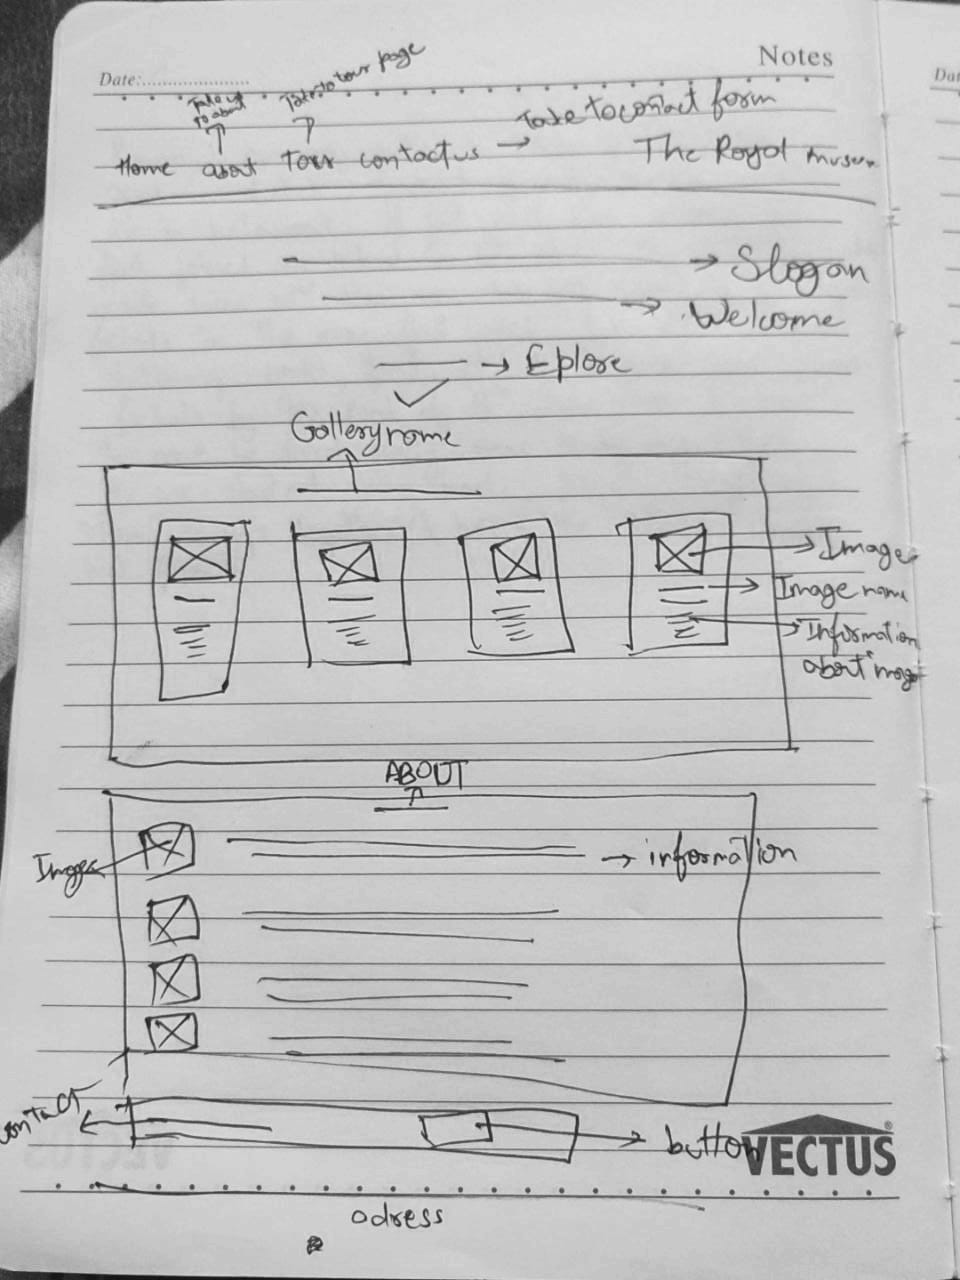 Notes
Date:.....................
Take us to about
Take to tour page
Take to contact form
Home about Tour contact us
The Royal museum
Slogan
Welcome
Eplore
Gallery name
Image
Image name
Information about image
ABOUT
Images
information
contact
button
VECTUS
adress